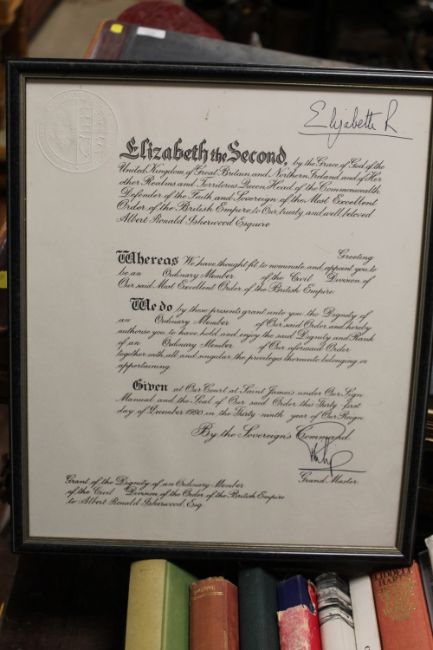 Elizabeth R
Elizabeth the Second, by the Grace of God of the
United Kingdom of Great Britain and Northern Ireland and of Her
other Realms and Territories Queen, Head of the Commonwealth,
Defender of the Faith and Sovereign of the Most Excellent
Order of the British Empire to Our trusty and well beloved
Albert Ronald Isherwood Esquire
Greeting
Whereas We have thought fit to nominate and appoint you to
be an Ordinary Member of the Civil Division of
Our said Most Excellent Order of the British Empire
We do by these presents grant unto you the Dignity of
an Ordinary Member of Our said Order and hereby
authorise you to have, hold and enjoy the said Dignity and Rank
of an Ordinary Member of Our aforesaid Order
together with all and singular the privileges thereunto belonging or
appertaining.
Given at Our Court at Saint James's under Our Sign
Manual and the Seal of Our said Order this Thirty first
day of December 1990 in the Thirty-ninth year of Our Reign.
By the Sovereign's Command.
Philip
Grand Master.
Grant of the Dignity of an Ordinary Member
of the Civil Division of the Order of the British Empire
to Albert Ronald Isherwood, Esq.